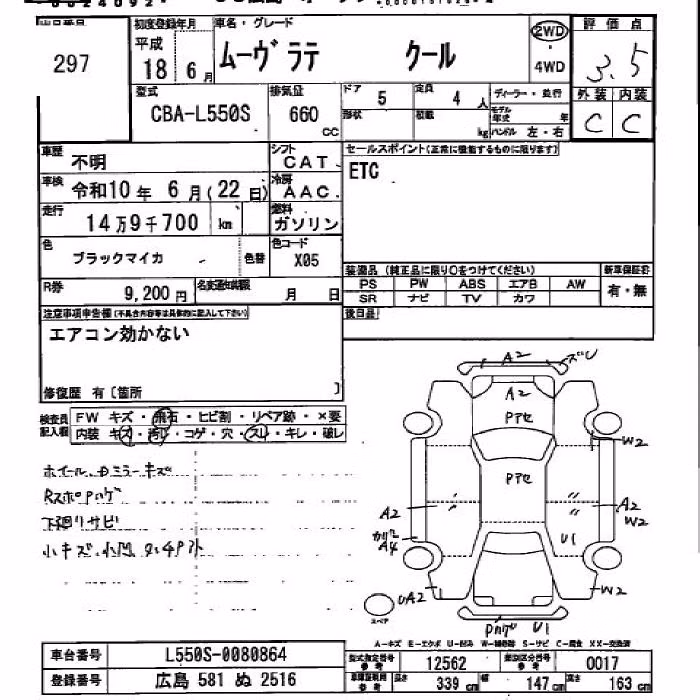 出品番号
297
初度登録年月
平成
18 6 月
車名・グレード
ムーヴ ラテ クール
2WD
・
4WD
評価点
3.5
外装 内装
C C
型式
CBA-L550S
排気量
660
CC
ドア
5
定員
4 人
形状
積載
kg
ディーラー・並行
モデル年式 年
ハンドル 左・右
車歴
不明
シフト
CAT
車検
令和10 年 6 月 (22 日)
冷房
AAC
走行
14万9千700 km
燃料
ガソリン
色
ブラックマイカ
色替
色コード
X05
R券
9,200 円
名変通知期限
月 日
セールスポイント(正常に機能するものに限ります)
ETC
装備品 (純正品に限り○をつけてください)
PS PW ABS エアB AW
SR ナビ TV カワ
新車保証書
有・無
後日品
注意事項申告欄(不具合内容等は具体的に記入して下さい)
エアコン効かない
修復歴 有〔箇所 〕
検査員
記入欄
FW キズ・飛石・ヒビ割・リペア跡・×要
内装 キズ・汚レ・コゲ・穴・スレ・キレ・破レ
ホイール、ドミラーキズ
下廻リサビ
A2
A2
Pアセ
Pアセ
W2
A2
A2
W2
A4
U1
UA2
W2
U1
スペア
A-キズ E-エクボ U-凹み W-補修跡 S-サビ C-腐食 XX-交換済
車台番号
L550S-0080864
登録番号
広島 581 ぬ 2516
型式指定番号
参考
12562
類別区分番号
参考
0017
車輌寸法
参考
長さ
339 cm
幅
147 cm
高さ
163 cm